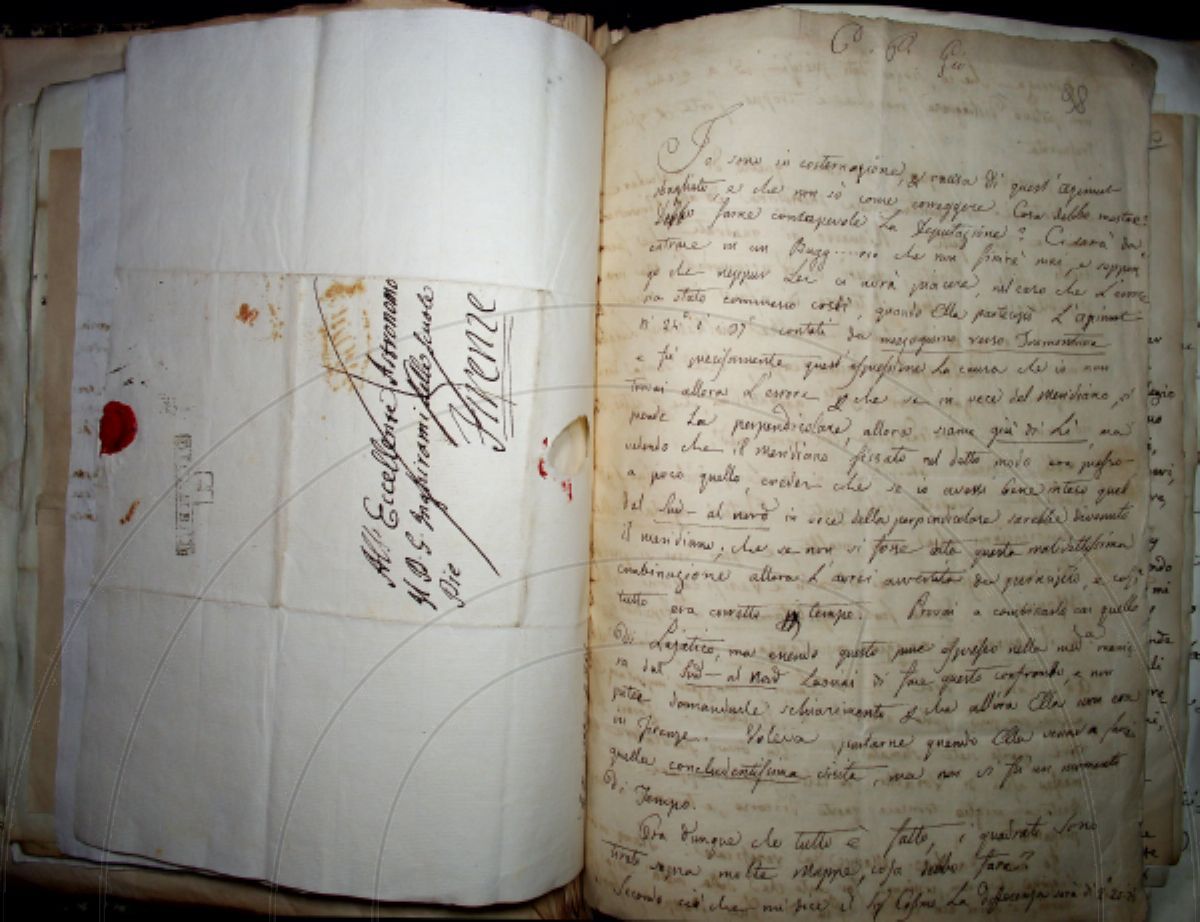 All' Eccellenze Astronomo
Il P. G. Inghirami delle Scuole
Pie
Firenze
C. P. Gio
98
Io sono in costernazione, a causa di quest' azimut
sbagliato, e che non sò come correggere. Cosa debbo
Debbo farne consapevole La Deputazione? Ci sarà da
entrare in un Bugg...rio che non finirà mai, e suppon
go che neppur Lei ci avrà piacere, nel caso che L'errore
sia stato commesso costì, quando Ella partecipò L'azimut
di 24° contati da mezzogiorno verso Tramontana
e fù precisamente quest' espressione La causa che io non
trovai allora L'errore che se in vece del Meridiano, si
prende La perpendicolare, allora siamo già di Lì, ma
vedendo che il Meridiano fissato nel detto modo era
a poco quello, creder che se io avessi bene inteso quel
dal Sud - al nord in vece della perpendicolare sarebbe divenuto
il meridiano; che se non si fosse data questa maledettissima
combinazione allora L'avrei avvertita da principio, e così
tutto era corretto in tempo. Provai a combinarlo con quello
di Lajatico, ma essendo questo pure espresso nella med.a manie
ra dal Sud - al Nord Lasciai di fare questo confronto, e non
potei domandarle schiarimento che allora Ella non era
in Firenze. Voleva parlarne quando Ella venne a fare
quella concludentissima visita, ma non vi fù un momento
di Tempo.
Ora dunque che tutto è fatto, i quadrati sono
tirati sopra molte Mappe, cosa debbo fare?
Secondo ciò che mi dice il La differenza sarà di